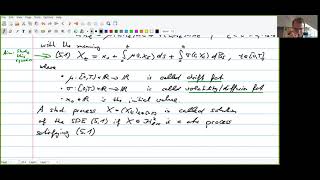 with the meaning
Aim: Study this equation
(5.1) X_t = x_0 + ∫_0^t μ(s, X_s) ds + ∫_0^t σ(s, X_s) dB_s , t∈[0,T]
where
• μ: [0,T]×ℝ → ℝ is called drift fct
• σ: [0,T]×ℝ → ℝ is called volatility/diffusion fct
• x_0 ∈ ℝ is the initial value.
A stoch process X = (X_t)_{t∈[0,T]} is called solution
of the SDE (5.1) if X is a process
satisfying (5.1)